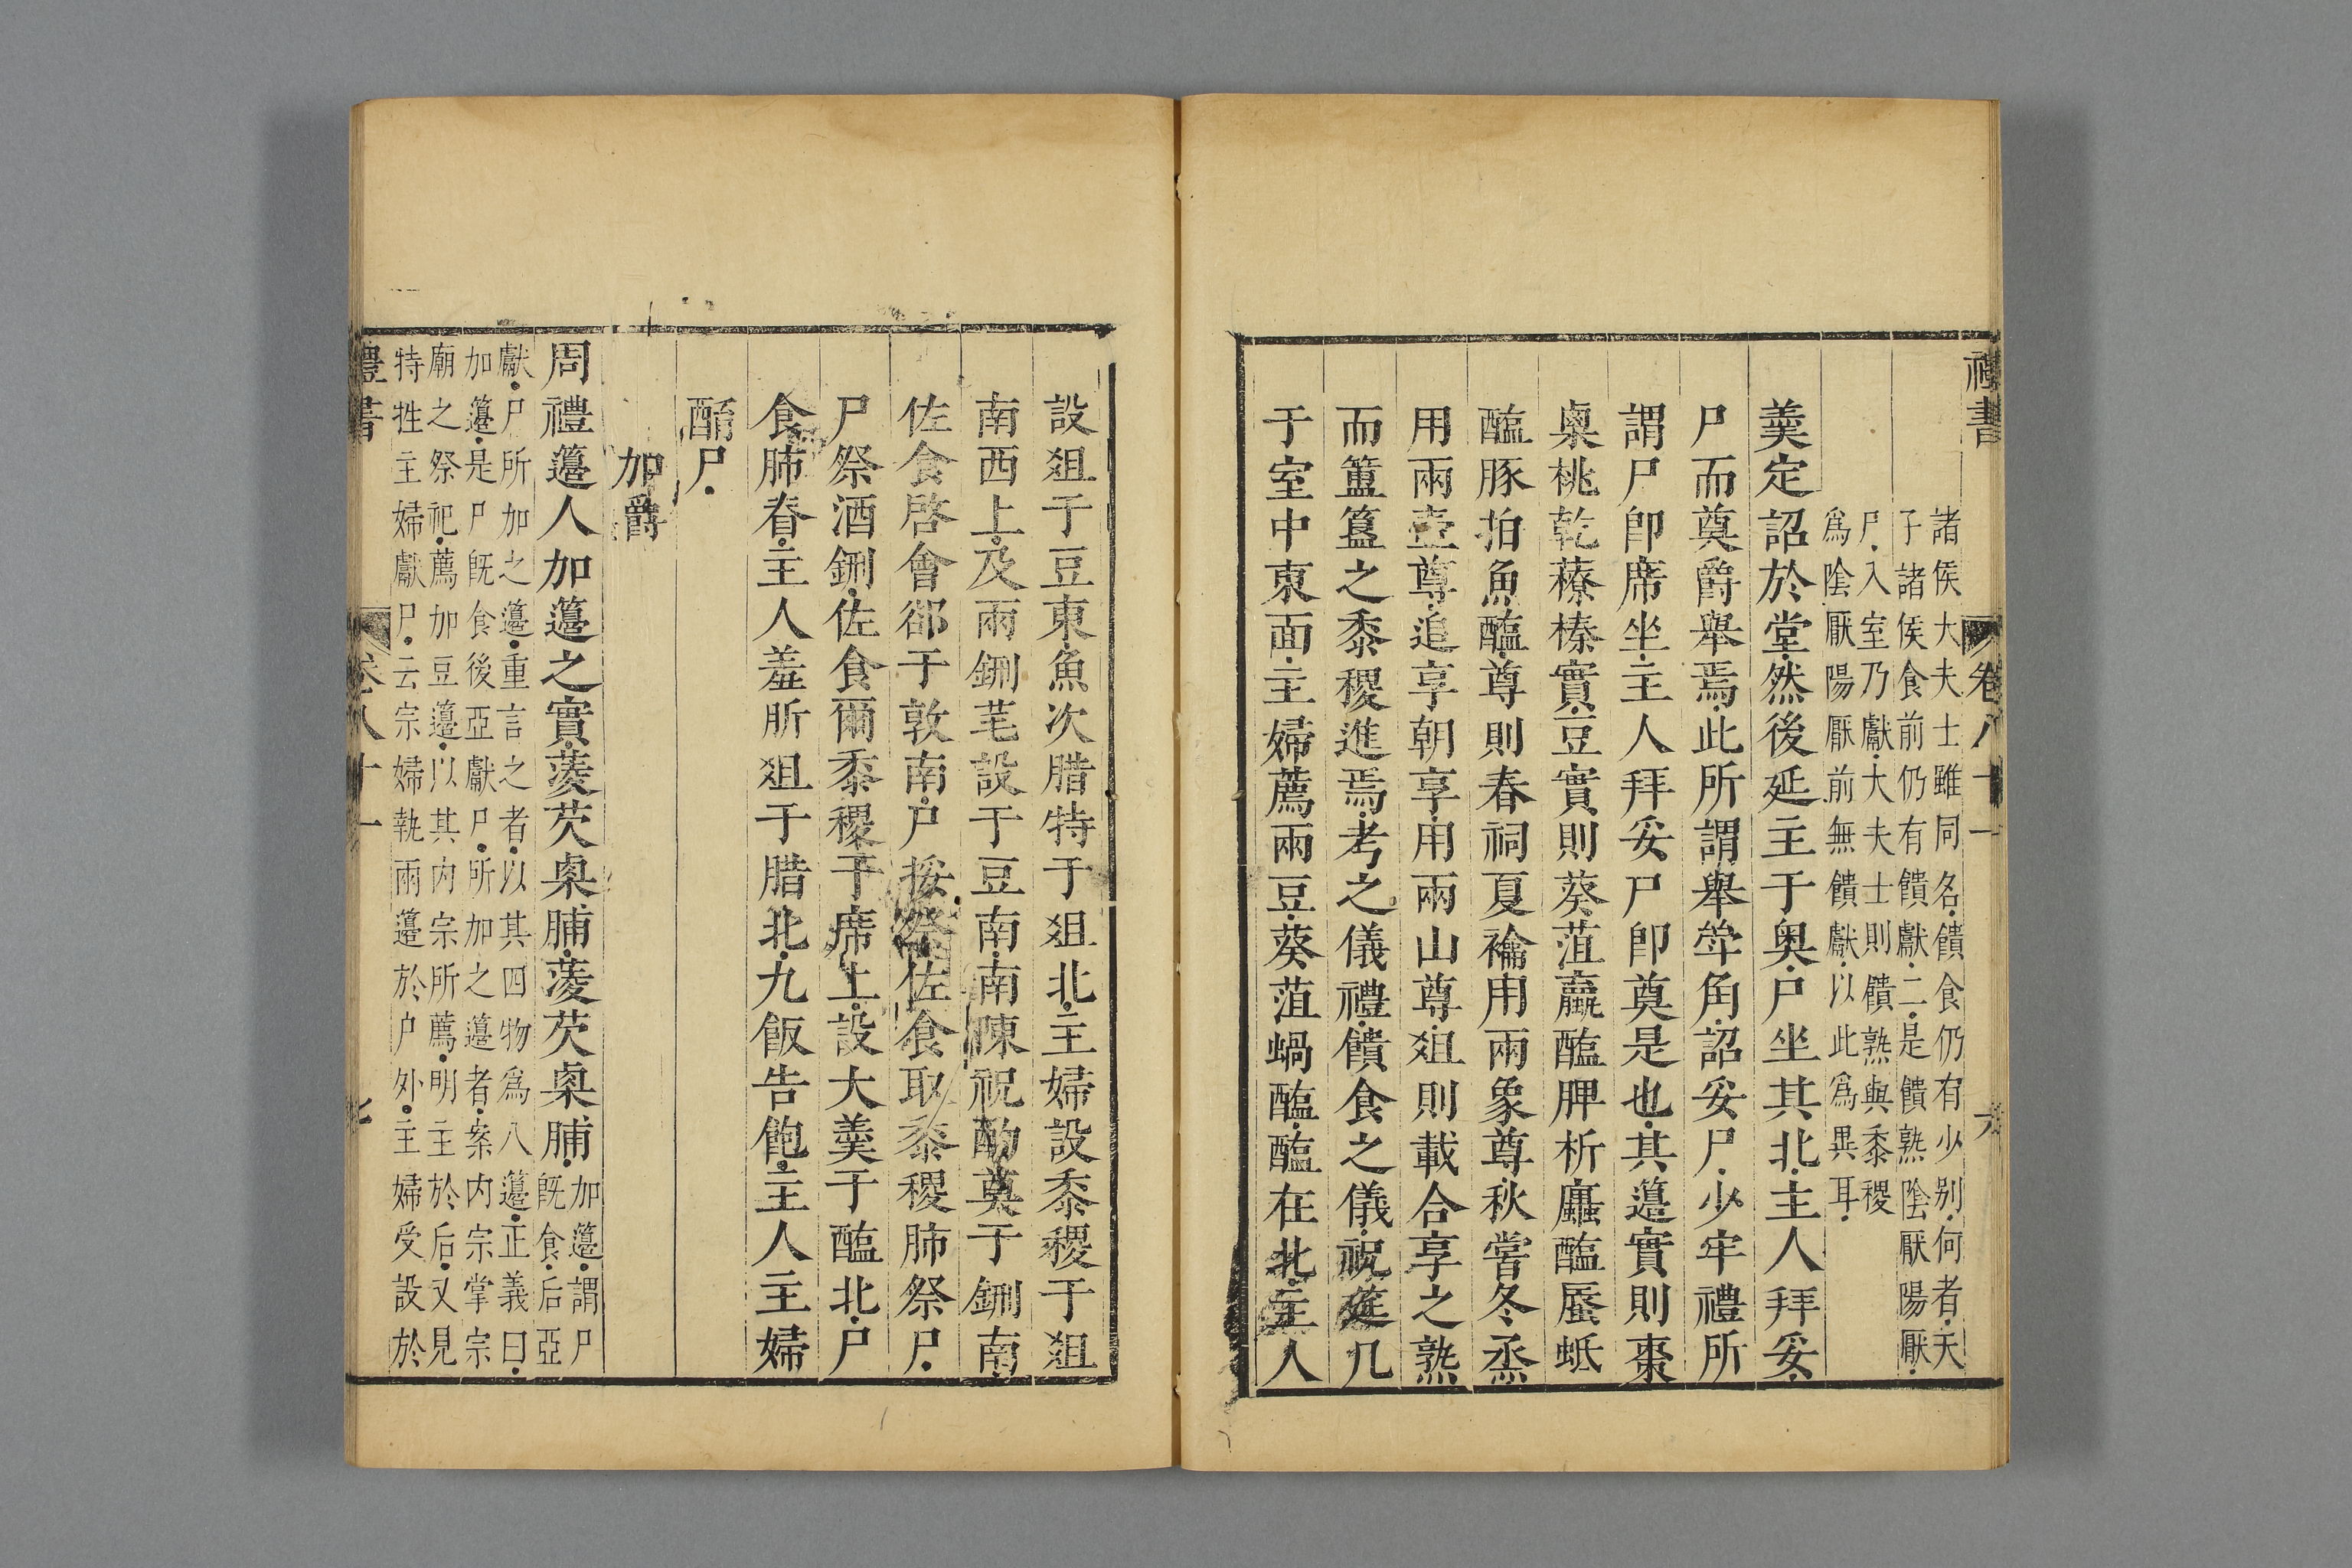 禮書
卷八十一
六
諸侯大夫士雖同名饋食仍有少别何者天
子諸侯食前仍有饋獻二是饋熟陰厭陽厭
尸入室乃獻大夫士則饋熟與黍稷
爲陰厭陽厭前無饋獻以此爲異耳
羹定詔於堂然後延主于奥户坐其北主人拜妥
尸而奠爵舉焉此所謂舉斝角詔妥尸少牢禮所
謂尸卽席坐主人拜妥尸卽奠是也其籩實則棗
㮚桃乾䕩榛實豆實則葵菹蠃醢脾析蠯醢蜃蚳
醢豚拍魚醢尊則春祠夏禴用兩象尊秋嘗冬烝
用兩壺尊追享朝享用兩山尊俎則載合享之熟
而簠簋之黍稷進焉考之儀禮饋食之儀祝筵几
于室中東面主婦薦兩豆葵菹蝸醢醢在北主人
設俎于豆東魚次腊特于俎北主婦設黍稷于俎
南西上及兩鉶芼設于豆南南陳祝酌奠于鉶南
佐食啓會郤于敦南尸挼祭佐食取黍稷肺祭尸
尸祭酒鉶佐食爾黍稷于席上設大羹于醢北尸
食肺脊主人羞肵俎于腊北九飯告飽主人主婦
酳尸
加爵
周禮籩人加籩之實蔆芡㮚脯蔆芡㮚脯加籩謂尸
既食后亞
獻尸所加之籩重言之者以其四物爲八籩正義曰
加籩是尸既食後亞獻尸所加之籩者案内宗掌宗
廟之祭祀薦加豆籩以其内宗所薦明主於后又見
特牲主婦獻尸云宗婦執兩籩於户外主婦受設於
禮書
卷八十一
七